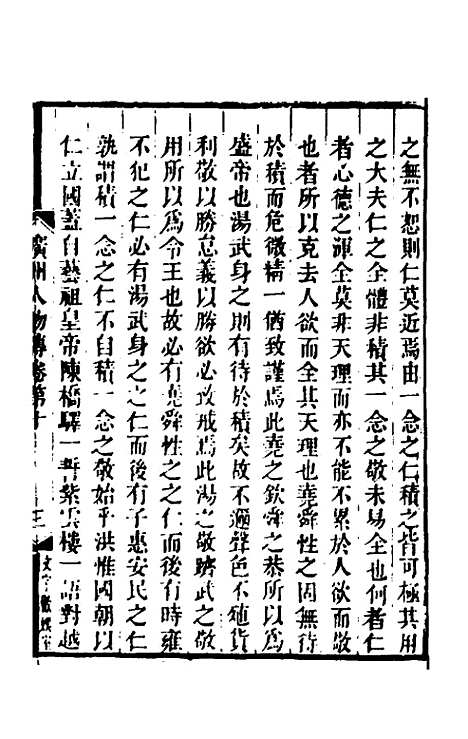 之無不恕則仁莫近焉由一念之仁積之皆可極其用
之大夫仁之全體非積其一念之敬未易全也何者仁
者心德之渾全莫非天理而亦不能不累於人欲而敬
也者所以克去人欲而全其天理也堯舜性之固無待
於積而危微精一猶致謹焉此堯之欽舜之恭所以爲
盛帝也湯武身之則有待於積矣故不邇聲色不殖貨
利敬以勝怠義以勝欲必致戒焉此湯之敬躋武之敬
用所以爲令王也故必有堯舜性之之仁而後有時雍
不犯之仁必有湯武身之之仁而後有子惠安民之仁
孰謂積一念之仁不自積一念之敬始乎洪惟國朝以
仁立國蓋自藝祖皇帝陳橋驛一誓紫雲樓一語對越
廣州人物傳卷第十